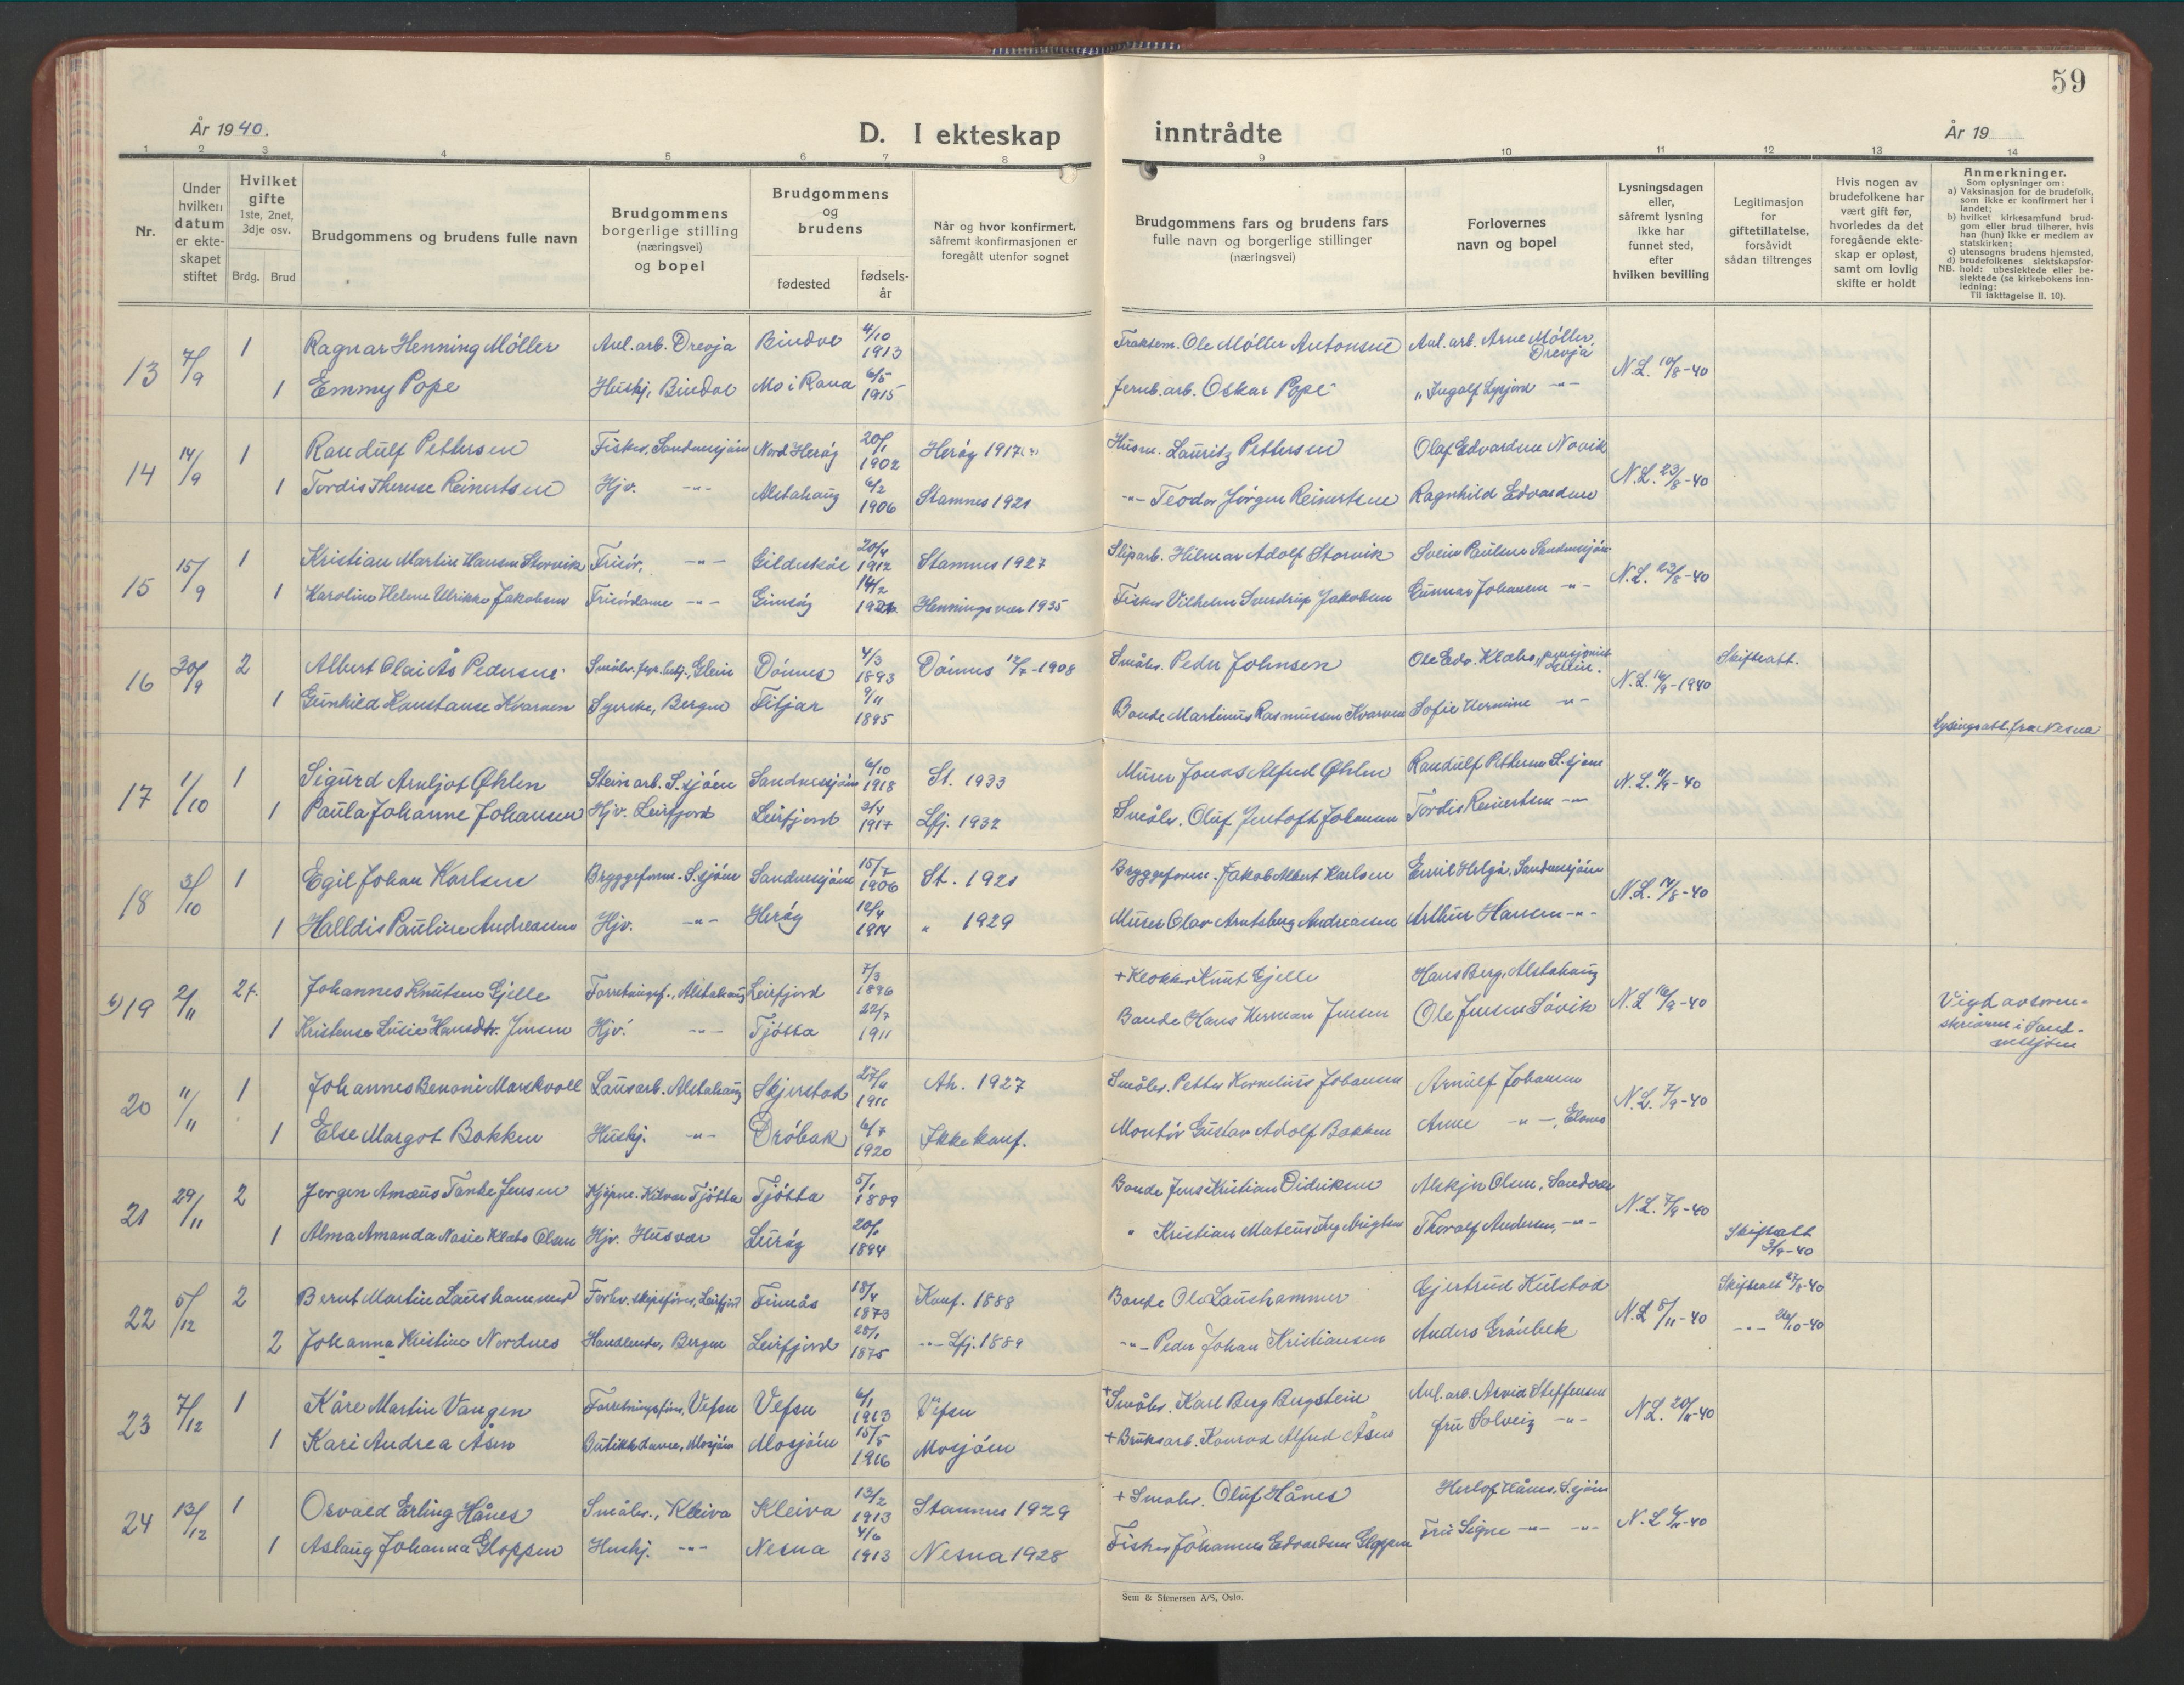 59
År 1940.
D. I ekteskap inntrådte
År 19
1 2 3 4 5 6 7 8 9 10 11 12 13 14
Nr.
Under hvilken datum er ekteskapet stiftet
Hvilket gifte 1ste, 2net, 3dje osv.
Brdg. Brud
Brudgommens og brudens fulle navn
Brudgommens borgerlige stilling (næringsvei) og bopel
Brudgommens og brudens
fødested
fødselsår
Når og hvor konfirmert, såfremt konfirmasjonen er foregått utenfor sognet
Brudgommens fars og brudens fars fulle navn og borgerlige stillinger (næringsvei)
Forlovernes navn og bopel
Lysningsdagen eller, såfremt lysning ikke har funnet sted, efter hvilken bevilling
Legitimasjon for giftetillatelse, forsåvidt sådan tiltrenges
Hvis nogen av brudefolkene har vært gift før, hvorledes da det foregående ekteskap er opløst, samt om lovlig skifte er holdt
Anmerkninger.
Som oplysninger om:
a) Vaksinasjon for de brudefolk, som ikke er konfirmert her i landet;
b) hvilket kirkesamfund brudgom eller brud tilhører, hvis han (hun) ikke er medlem av statskirken;
c) utensogns brudens hjemsted,
d) brudefolkenes slektskapsforhold: ubeslektede eller beslektede (se kirkebokens innledning:
NB. Til iakttagelse II. 10).
13 7/9 1 Ragnar Henning Møller Anl.arb. Drevja Bindal 4/10 1913 Ole Møller Antonsen Anl. arb. Arne Møller, Drevja N.L. 10/8-40
1 Emmy Pope Hushj, Bindal Mo i Rana 6/5 1915 Jernb.arb. Oskar Pope " Ingolf -"-
14 14/9 1 Randulf Pettersen Fisker, Sandnessjøen Nord Herøy 20/1 1902 Herøy 1917 Husm. Lauritz Pettersen Olaf Edvardsen Novik N.L. 23/8-40
1 Tordis Therese Reinertsen Hjv. -"- Alstahaug 6/2 1906 Stamnes 1921 -"- Teodor Jørgen Reinertsen Ragnhild Edvardsen
15 15/9 1 Kristian Martin Hansen Storvik Frisør, -"- Gildeskål 20/4 1912 Stamnes 1927 Sliparb. Hilmar Adolf Storvik Svein Paulsen Sandnessjøen N.L. 23/8-40
1 Karoline Helene Ulrikke Jakobsen Frisørdame -"- Gimsøy 14/2 Henningsvær 1935 Fisker Vilhelm Sverdrup Jakobsen Gunnar Johansen -"-
16 30/9 2 Albert Olai Ås Pedersen Dønnes 4/3 1893 Dønnes 12/7-1908 Småbr. Peder Johnsen Ole Edv. Klabo, pensjonist N.L. 16/9-1940 Skifteatt.
1 Gunhild Konstanse Kvarven Syerske, Bergen Fitjar 9/11 1895 Bonde Martinus Rasmussen Kvarven Sofie Hermine -"- Lysingsatt. fra Nesna
17 1/10 1 Sigurd Arnljot Øhlen Steinarb. S.sjøen Sandnessjøen 6/10 1918 St. 1933 Murer Jonas Alfred Øhlen Randulf Pettersen S.sjøen N.L. 11/9-40
1 Paula Johanne Johansen Hjv. Leirfjord Leirfjord 2/4 1917 Lfj. 1932 Småbr. Oluf Jentoft Johansen Tordis Reinertsen -"-
18 3/10 1 Egil Johan Karlsen Bryggeform. S.sjøen Sandnessjøen 15/7 1906 St. 1921 Bryggeform. Jakob Albert Karlsen Emil Helgå, Sandnessjøen N.L. 14/8-40
1 Halldis Pauline Andreassen Hjv. -"- Herøy 12/4 1914 " 1929 Murer Olav Arntsberg Andreassen Arthur Hansen -"-
19 2/11 2 Johannes Knutsen Gjelle Forretningsf., Alstahaug Leirfjord 7/3 1896 + Klokker Knut Gjelle Hans Berg, Alstahaug N.L. 16/9-40 Vigd av sorenskriveren i Sandnessjøen
1 Kristense Lusie Hansdtr. Jensen Hjv. -"- Tjøtta 22/7 1911 Bonde Hans Herman Jensen Ole Jensen Søvik
20 11/11 1 Johannes Benoni Marskvoll Lausarb. Alstahaug Skjerstad 27/11 1911 Ah. 1927 Småbr. Petter Kornelius Johansen Arnulf Johansen N.L. 7/9-40
1 Else Margot Bakken Hushj. -"- Drøbak 6/7 1920 Ikke konf. Montør Gustav Adolf Bakken Anne -"-
21 29/11 2 Jørgen Amæus Tanke Jensen Kjøpm. Tjøtta Tjøtta 5/1 1889 Bonde Jens Kristian Didriksen Olsen, N.L. 7/9-40
1 Alma Amanda Klabo Olsen Hjv. Husvær Lurøy 1894 " Kristian Mateus Thoralf Andersen, -"- Skifteatt 3/9-40
22 5/12 2 Bernt Martin Laushammer Forhv. skipsfører, Leirfjord Finnås 18/4 1873 Konf. 1888 Bonde Ole Laushammer Gjertrud Kulstad N.L. 5/11-40 Skifteatt 27/8-40
2 Johanna Kristine Nordnes Handlende, Bergen Leirfjord 28/1 1875 -"- Lfj. 1889 -"- Peder Johan Kristiansen Anders Grønbek -"- 26/10-40
23 7/12 1 Kåre Martin Vangen Forretningsfører, Vefsn Vefsn 6/1 1913 Vefsn + Småbr. Karl Berg Bergstein Anl. arb. Arvid Steffensen N.L. 20/11-40
1 Kari Andrea Åsen Butikkdame, Mosjøen Mosjøen 15/5 1916 Mosjøen + Bruksarb. Konrad Alfred Åsen fru Solveig -"-
24 13/12 1 Osvald Erling Hånes Småbr., Kleiva Kleiva 13/2 1913 Stamnes 1929 + Småbr. Oluf Hånes Herlof Hånes, S.sjøen N.L.
1 Aslaug Johanna Gloppen Hushj. -"- Nesna 4/6 1913 Nesna 1928 Fisker Johannes Edvardsen Gloppen Fru Signe -"- -"-
Sem & Stenersen A/S, Oslo.